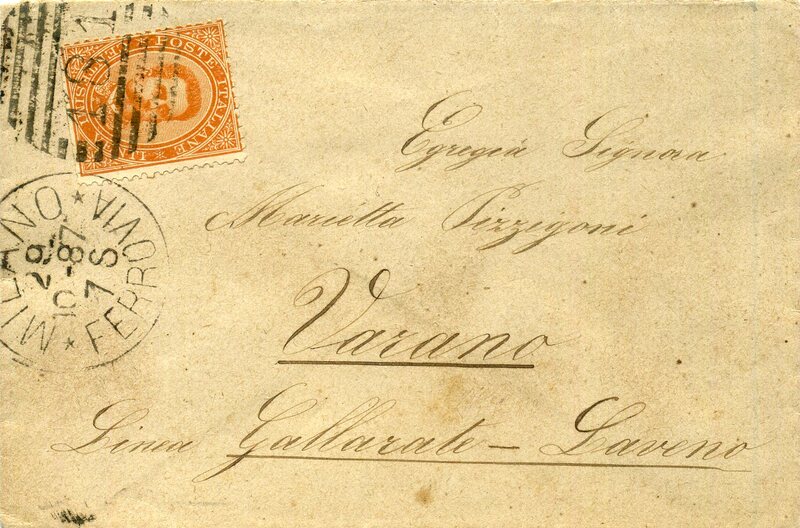 POSTE ITALIANE
MILANO
FERROVIA
29
10-87
7 S
Egregia Signora
Marietta Pizzigoni
Varano
Linea Gallarate - Laveno